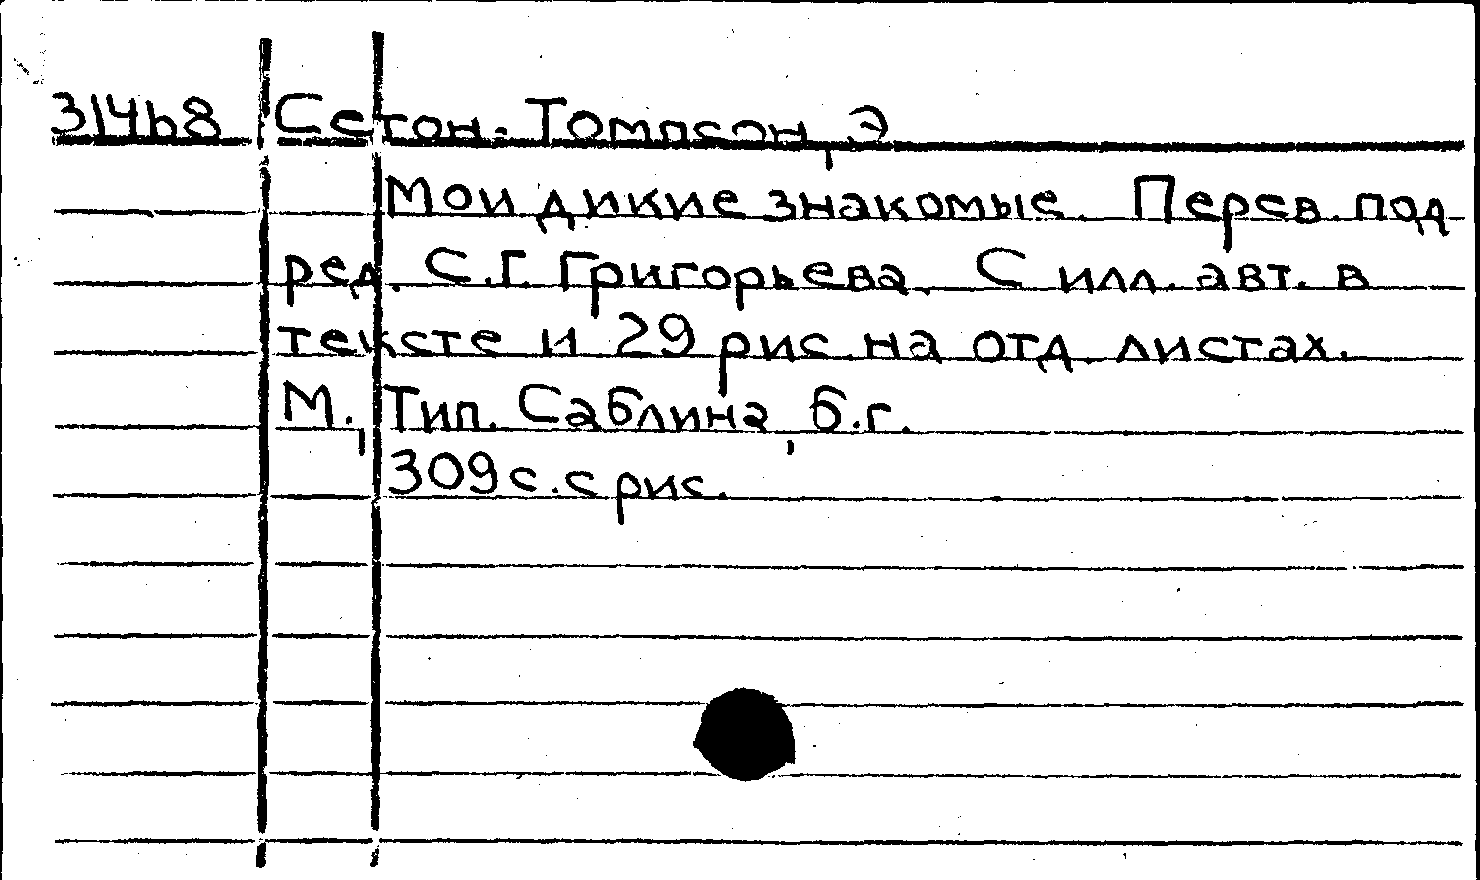 31468 Сетон-Томпсон, Э
Мои дикие знакомые. Перев. под
ред. С.Г. Григорьева. С илл. авт. в
тексте и 29 рис. на отд. листах.
М., Тип. Саблина, б.г.
309 с. с рис.